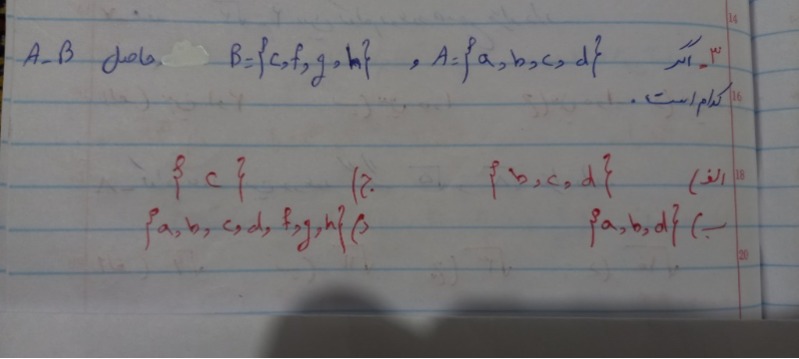 ۳ـ اگر A={a,b,c,d} , B={c,f,g,h} حاصل A-B
کدام است.
الف) {b,c,d} ج) {c}
ب) {a,b,d} د) {a,b,c,d,f,g,h}
14
16
18
20